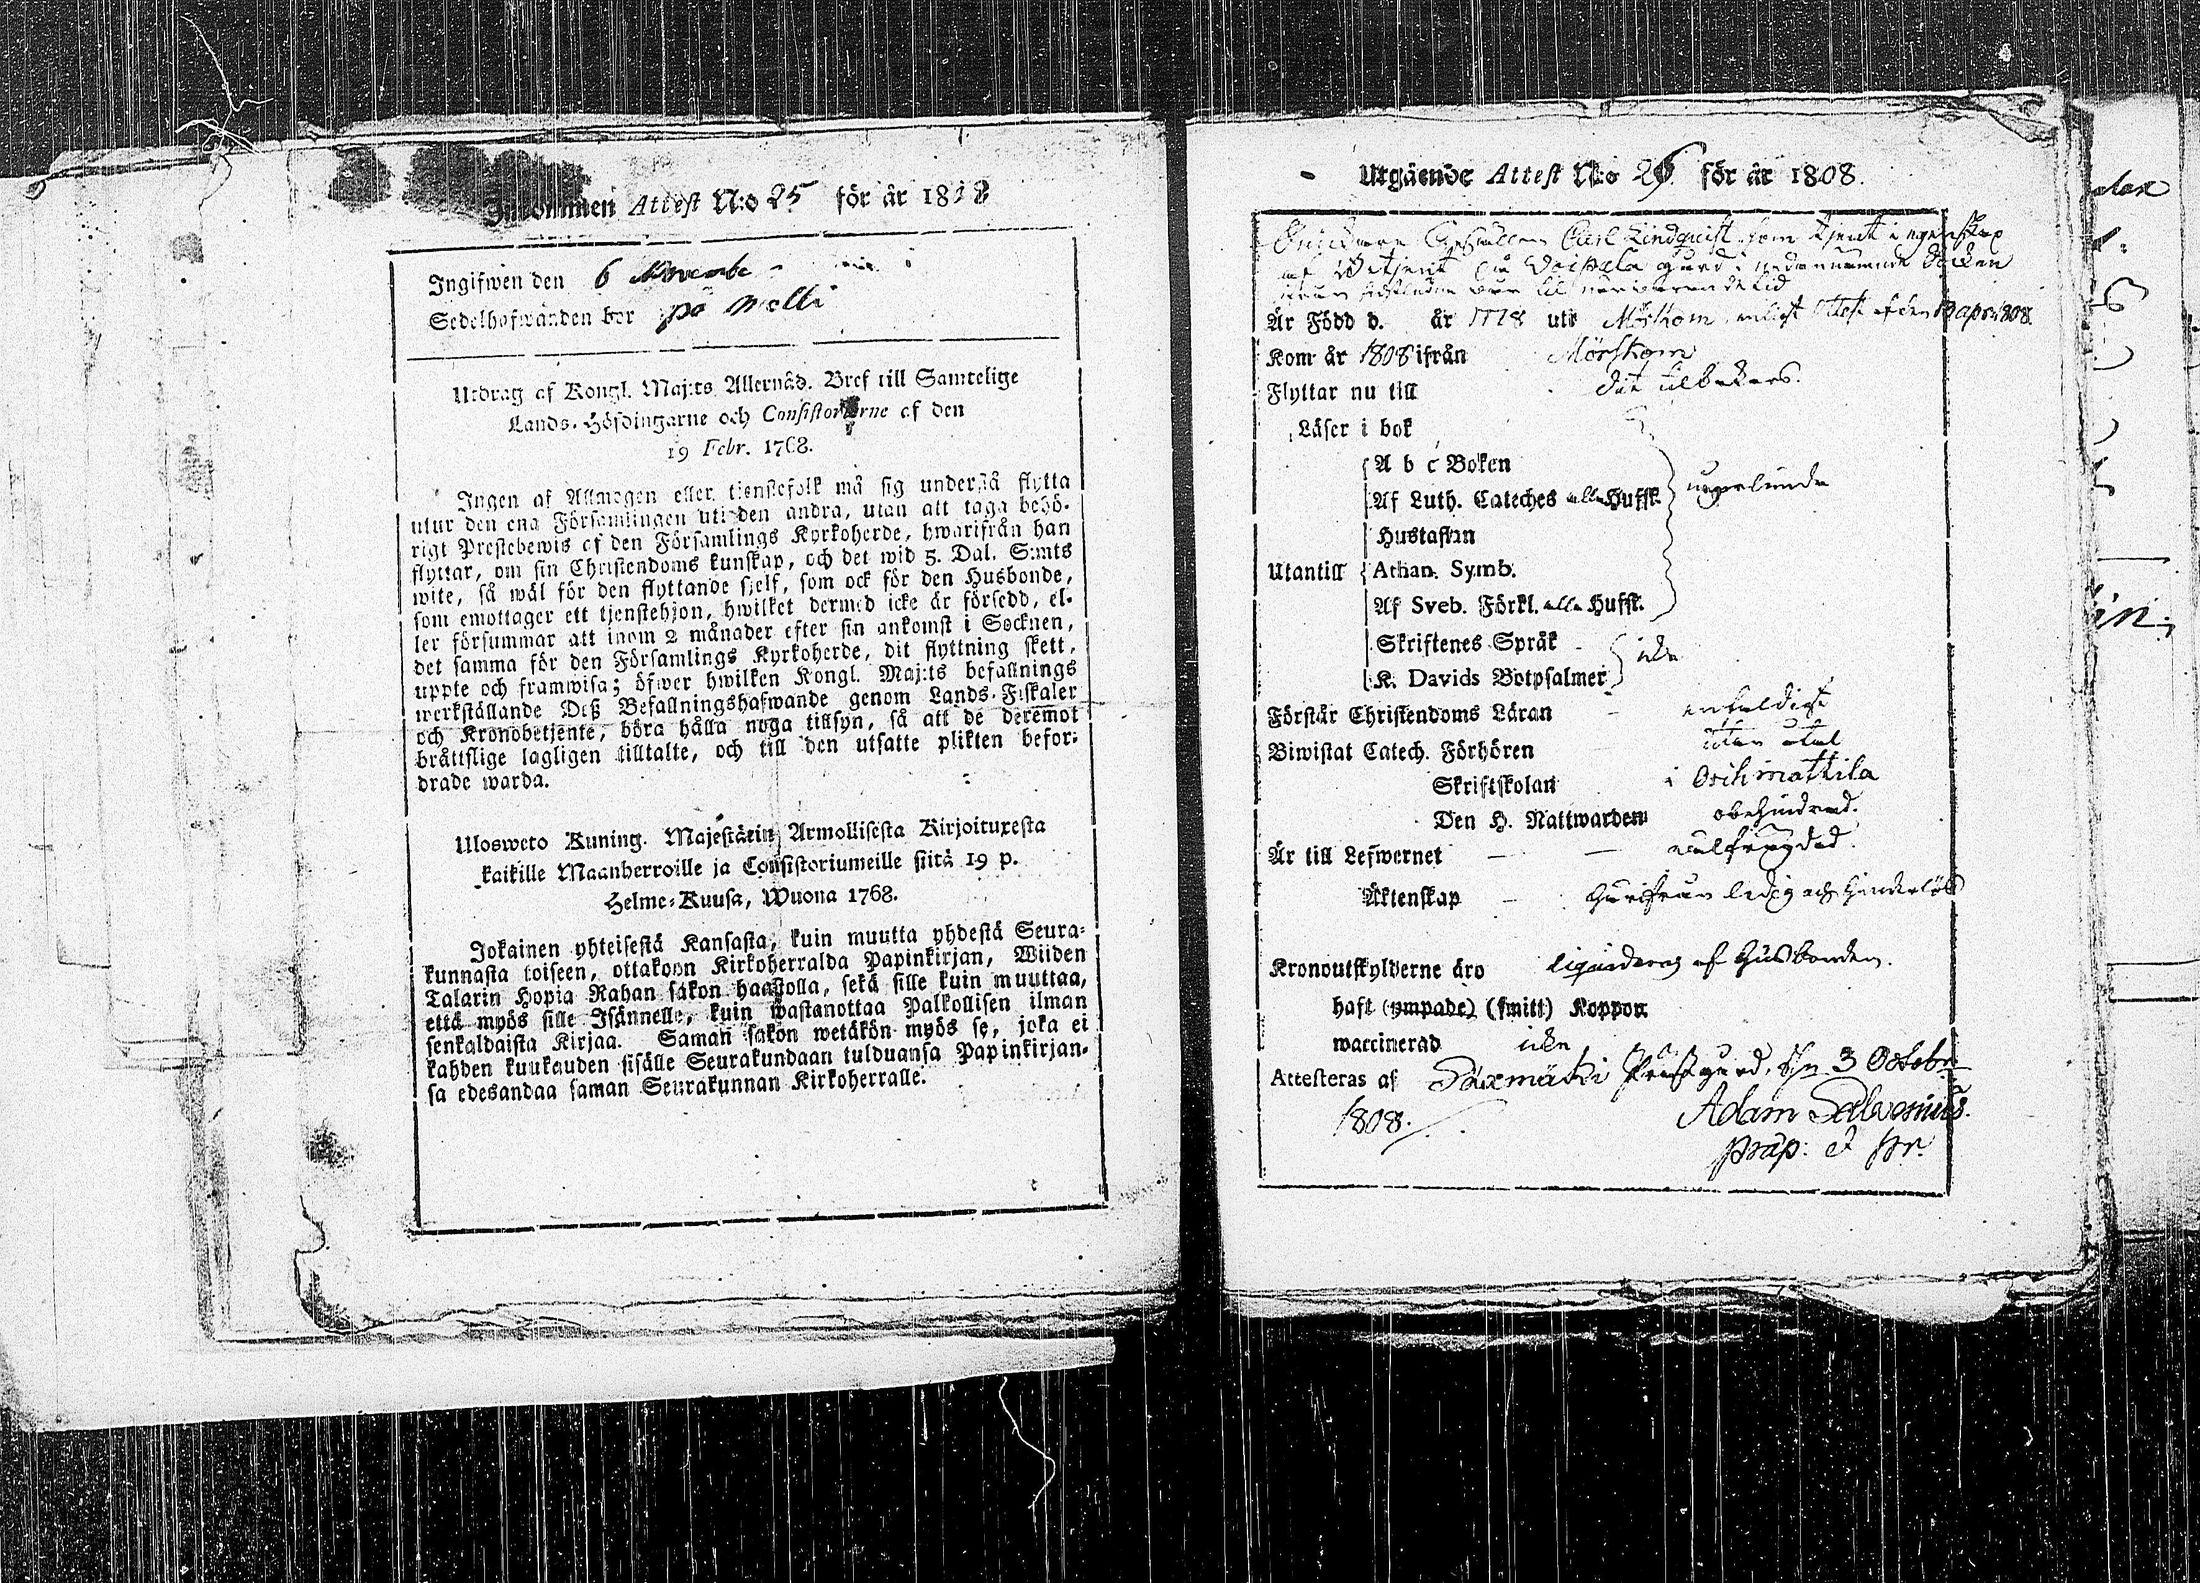 Inkommen Attest N:o 25 för år 1808
Ingifwen den 6 Novemb
Sedelhafwanden bor på Malli
Utdrag af Kongl. Maj:ts Allernåd. Bref till Samtelige
Lands-Höfdingarne och Consistorierne af den
19 Febr. 1768.
Ingen af Allmogen eller tjenstefolk må sig understå flytta
utur den ena Församlingen uti den andra, utan att taga behö-
rigt Prestebewis af den Församlings Kyrkoherde, hwarifrån han
flyttar, om sin Christendoms kunskap, och det wid 5. Dal. S:mts
wite, så wäl för den flyttande sjelf, som ock för den Husbonde,
som emottager ett tjenstehjon, hwilket dermed icke är försedd, el-
ler försummar att inom 2 månader efter sin ankomst i Socknen,
det samma för den Församlings Kyrkoherde, dit flyttning skett,
uppte och framwisa; öfwer hwilken Kongl. Maj:ts befallnings
werkställande Deß Befallningshafwande genom Lands-Fiskaler
och Kronobetjente, böra hålla noga tillsyn, så att de deremot
bråttslige lagligen tilltalte, och till den utsatte plikten befor-
drade warda.
Ulosweto Kuning. Majestätin Armollisesta Kirjoituxesta
kaikille Maanherroille ja Consistoriumeille siitä 19 p.
Helme-Kuusa, Wuona 1768.
Jokainen yhteisestä Kansasta, kuin muutta yhdestä Seura-
kunnasta toiseen, ottakoon Kirkoherralda Papinkirjan, Wiiden
Talarin Hopia Rahan sakon haastolla, sekä sille kuin muuttaa,
että myös sille Isännelle, kuin wastanottaa Palkollisen ilman
senkaldaista Kirjaa. Saman sakon wetäkön myös se, joka ei
kahden kuukauden sisälle Seurakundaan tulduansa Papinkirjan-
sa edesandaa saman Seurakunnan Kirkoherralle.
Utgående Attest N:o 26 för år 1808.
Carl Lindquist som tjent i egenskap
af Betjent på Voipala gård i nedannämnde Socken
Är Född d. år 1778 uti Mörskom, enligt Attest af den 13 apr. 1808.
Kom år 1808 ifrån Mörskom
Flyttar nu till dit tilbakars.
Läser i bok
A b c Boken
Af Luth. Cateches alla Hufst.
Hustaflan
Utantill Athan. Symb.
Af Sveb. Förkl. alla Hufst.
Skriftenes Språk
K. Davids Botpsalmer icke
Förstår Christendoms Läran enfaldigt
Biwistat Catech. Förhören utan åtal
Skriftskolan i Orihmattila
Den H. Nattwarden obehindrad.
Är till Lefwernet wälfrägdad.
Äktenskap ledig och hinderlös
Kronoutskylderne äro liquiderad af Husbonden.
haft (ympade) (smitt) Koppor
waccinerad icke
Attesteras af Sääxmäki Prästgård, d. 3 Octobr.
1808.
Adam
præp: et pr.